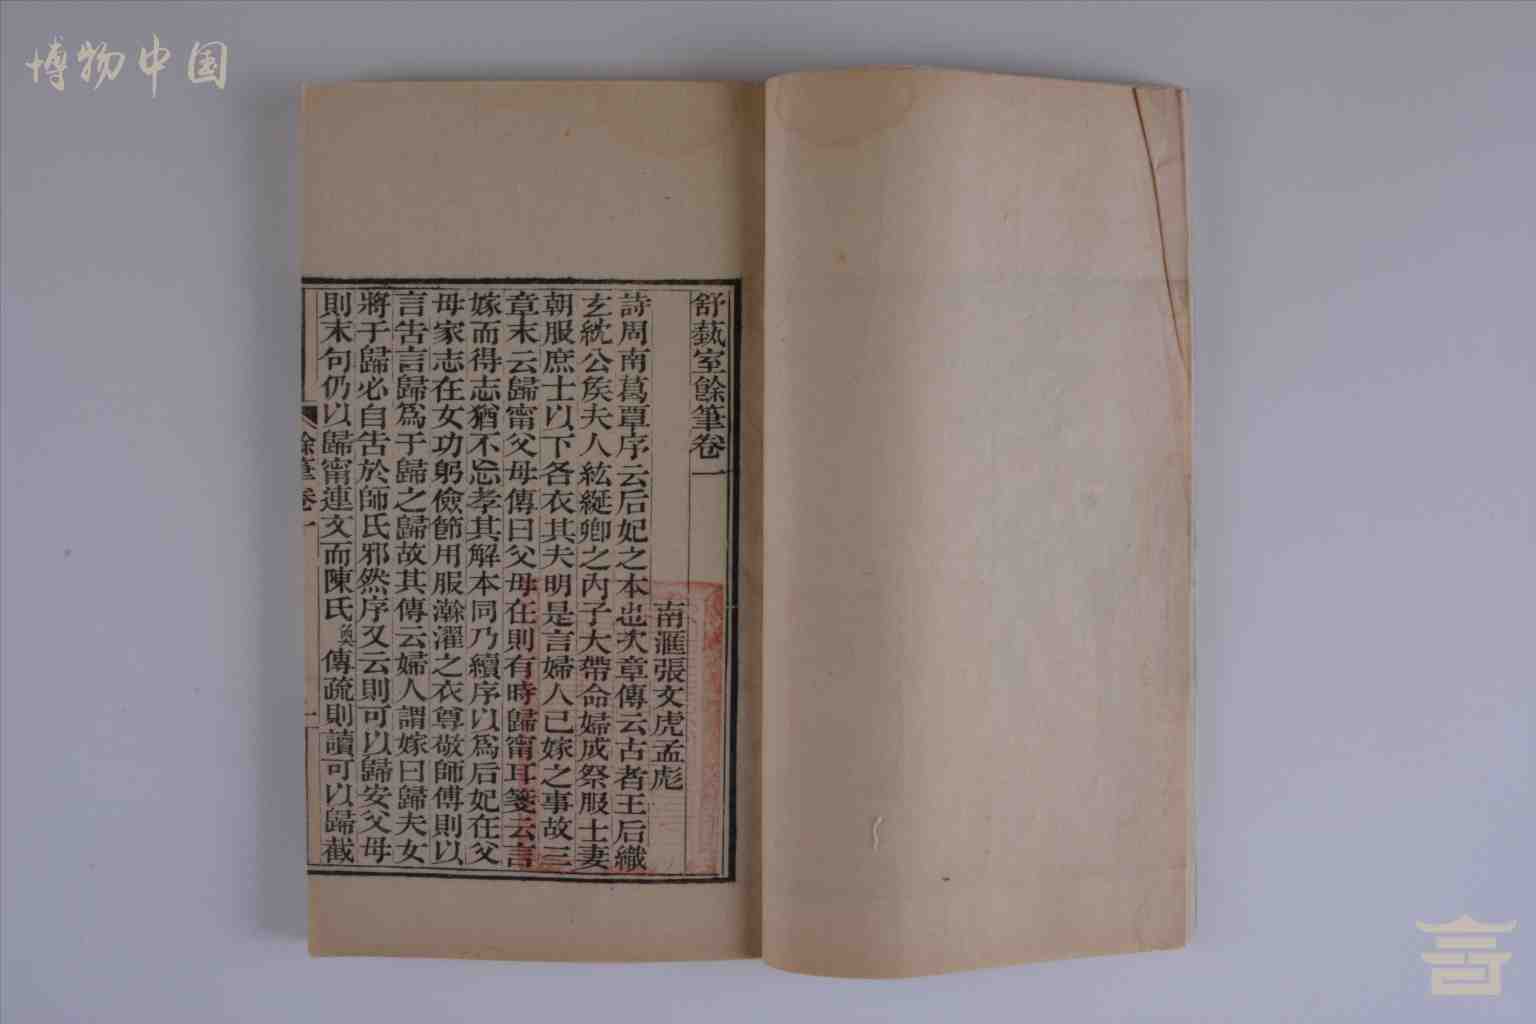 博物中国
舒蓺室餘筆卷一
南滙張文虎孟彪
詩周南葛覃序云后妃之本也次章傳云古者王后織
玄紞公矦夫人紘綖卿之内子大帶命婦成祭服士妻
朝服庶士以下各衣其夫明是言婦人已嫁之事故三
章末云歸甯父母傳曰父母在則有時歸甯耳箋云言
嫁而得志猶不忘孝其解本同乃續序以爲后妃在父
母家志在女功躬儉節用服澣濯之衣尊敬師傅則以
言告言歸爲于歸之歸故其傳云婦人謂嫁曰歸夫女
將于歸必自告於師氏邪然序又云則可以歸安父母
則末句仍以歸甯連文而陳氏奐傳疏則讀可以歸截
餘筆卷一
一